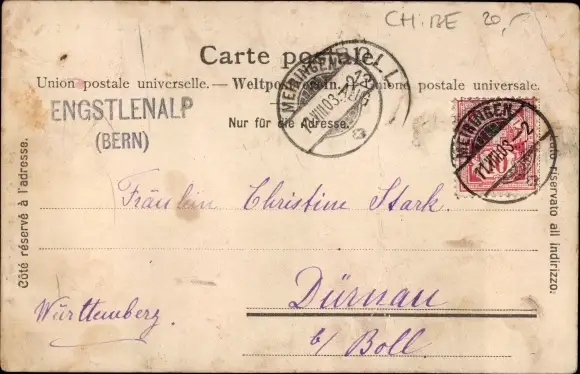 CH:BE 20,-
Carte postale.
Union postale universelle. — Weltpostverein. — Unione postale universale.
ENGSTLENALP
(BERN)
Nur für die Adresse.
MEIRINGEN
MEIRINGEN
11.VIII.03.-2
10
Côté réservé à l'adresse.
riservato all indirizzo.
Fräulein Christine Stark.
Dürnau
Württemberg.
b/ Boll